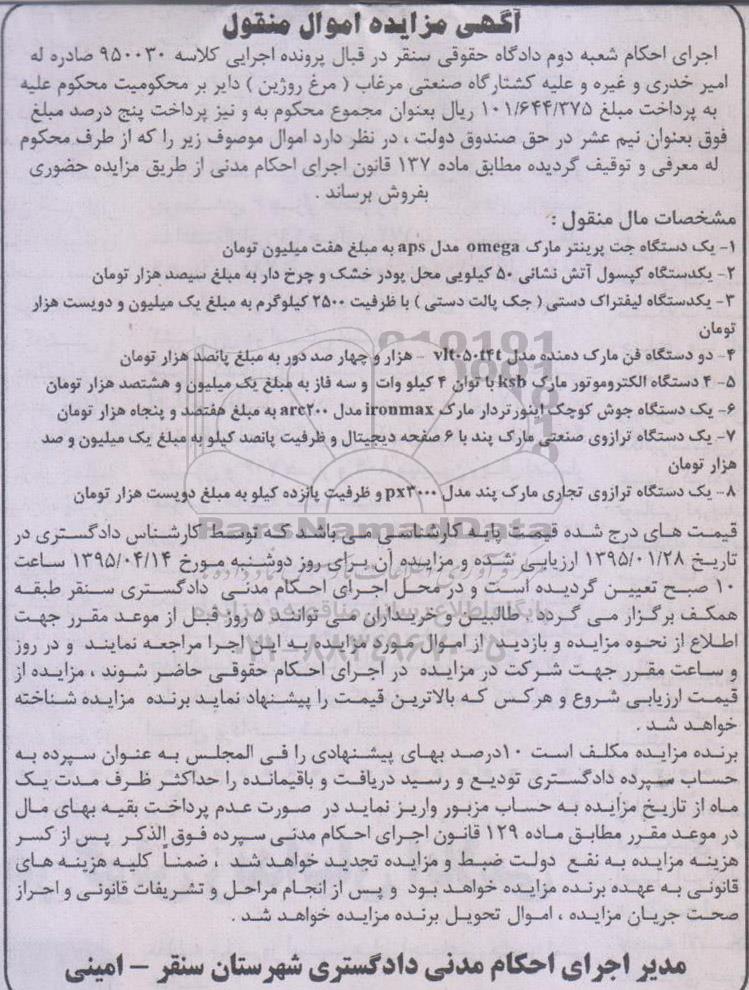 آگهی مزایده اموال منقول
اجرای احکام شعبه دوم دادگاه حقوقی سنقر در قبال پرونده اجرایی کلاسه ۹۵۰۰۳۰ صادره له
امیر خدری و غیره و علیه کشتارگاه صنعتی مرغاب ( مرغ روژین ) دایر بر محکومیت محکوم علیه
به پرداخت مبلغ ۱۰۱/۶۴۴/۳۷۵ ریال بعنوان مجموع محکوم به و نیز پرداخت پنج درصد مبلغ
فوق بعنوان نیم عشر در حق صندوق دولت ، در نظر دارد اموال موصوف زیر را که از طرف محکوم
له معرفی و توقیف گردیده مطابق ماده ۱۳۷ قانون اجرای احکام مدنی از طریق مزایده حضوری
بفروش برساند .
مشخصات مال منقول :
۱- یک دستگاه جت پرینتر مارک omega مدل aps به مبلغ هفت میلیون تومان
۲- یکدستگاه کپسول آتش نشانی ۵۰ کیلویی محل پودر خشک و چرخ دار به مبلغ سیصد هزار تومان
۳- یکدستگاه لیفتراک دستی ( جک پالت دستی ) با ظرفیت ۲۵۰۰ کیلوگرم به مبلغ یک میلیون و دویست هزار
تومان
۴- دو دستگاه فن مارک دمنده مدل vlt۰۵۰t۴t - هزار و چهار صد دور به مبلغ پانصد هزار تومان
۵- ۴ دستگاه الکتروموتور مارک ksb با توان ۴ کیلو وات و سه فاز به مبلغ یک میلیون و هشتصد هزار تومان
۶- یک دستگاه جوش کوچک اینورتردار مارک ironmax مدل arc۲۰۰ به مبلغ هفتصد و پنجاه هزار تومان
۷- یک دستگاه ترازوی صنعتی مارک پند با ۶ صفحه دیجیتال و ظرفیت پانصد کیلو به مبلغ یک میلیون و صد
هزار تومان
۸- یک دستگاه ترازوی تجاری مارک پند مدل px۳۰۰۰ و ظرفیت پانزده کیلو به مبلغ دویست هزار تومان
ParsNamadData
قیمت های درج شده قیمت پایه کارشناسی می باشد که توسط کارشناس دادگستری در
تاریخ ۱۳۹۵/۰۱/۲۸ ارزیابی شده و مزایده آن برای روز دوشنبه مورخ ۱۳۹۵/۰۴/۱۴ ساعت
۱۰ صبح تعیین گردیده است و در محل اجرای احکام مدنی دادگستری سنقر طبقه
همکف برگزار می گردد . طالبین و خریداران می توانند ۵ روز قبل از موعد مقرر جهت
اطلاع از نحوه مزایده و بازدید از اموال مورد مزایده به این اجرا مراجعه نمایند و در روز
و ساعت مقرر جهت شرکت در مزایده در اجرای احکام حقوقی حاضر شوند ، مزایده از
قیمت ارزیابی شروع و هرکس که بالاترین قیمت را پیشنهاد نماید برنده مزایده شناخته
خواهد شد .
برنده مزایده مکلف است ۱۰درصد بهای پیشنهادی را فی المجلس به عنوان سپرده به
حساب سپرده دادگستری تودیع و رسید دریافت و باقیمانده را حداکثر ظرف مدت یک
ماه از تاریخ مزایده به حساب مزبور واریز نماید در صورت عدم پرداخت بقیه بهای مال
در موعد مقرر مطابق ماده ۱۲۹ قانون اجرای احکام مدنی سپرده فوق الذکر پس از کسر
هزینه مزایده به نفع دولت ضبط و مزایده تجدید خواهد شد ، ضمناً کلیه هزینه های
قانونی به عهده برنده مزایده خواهد بود و پس از انجام مراحل و تشریفات قانونی و احراز
صحت جریان مزایده ، اموال تحویل برنده مزایده خواهد شد .
مدیر اجرای احکام مدنی دادگستری شهرستان سنقر – امینی